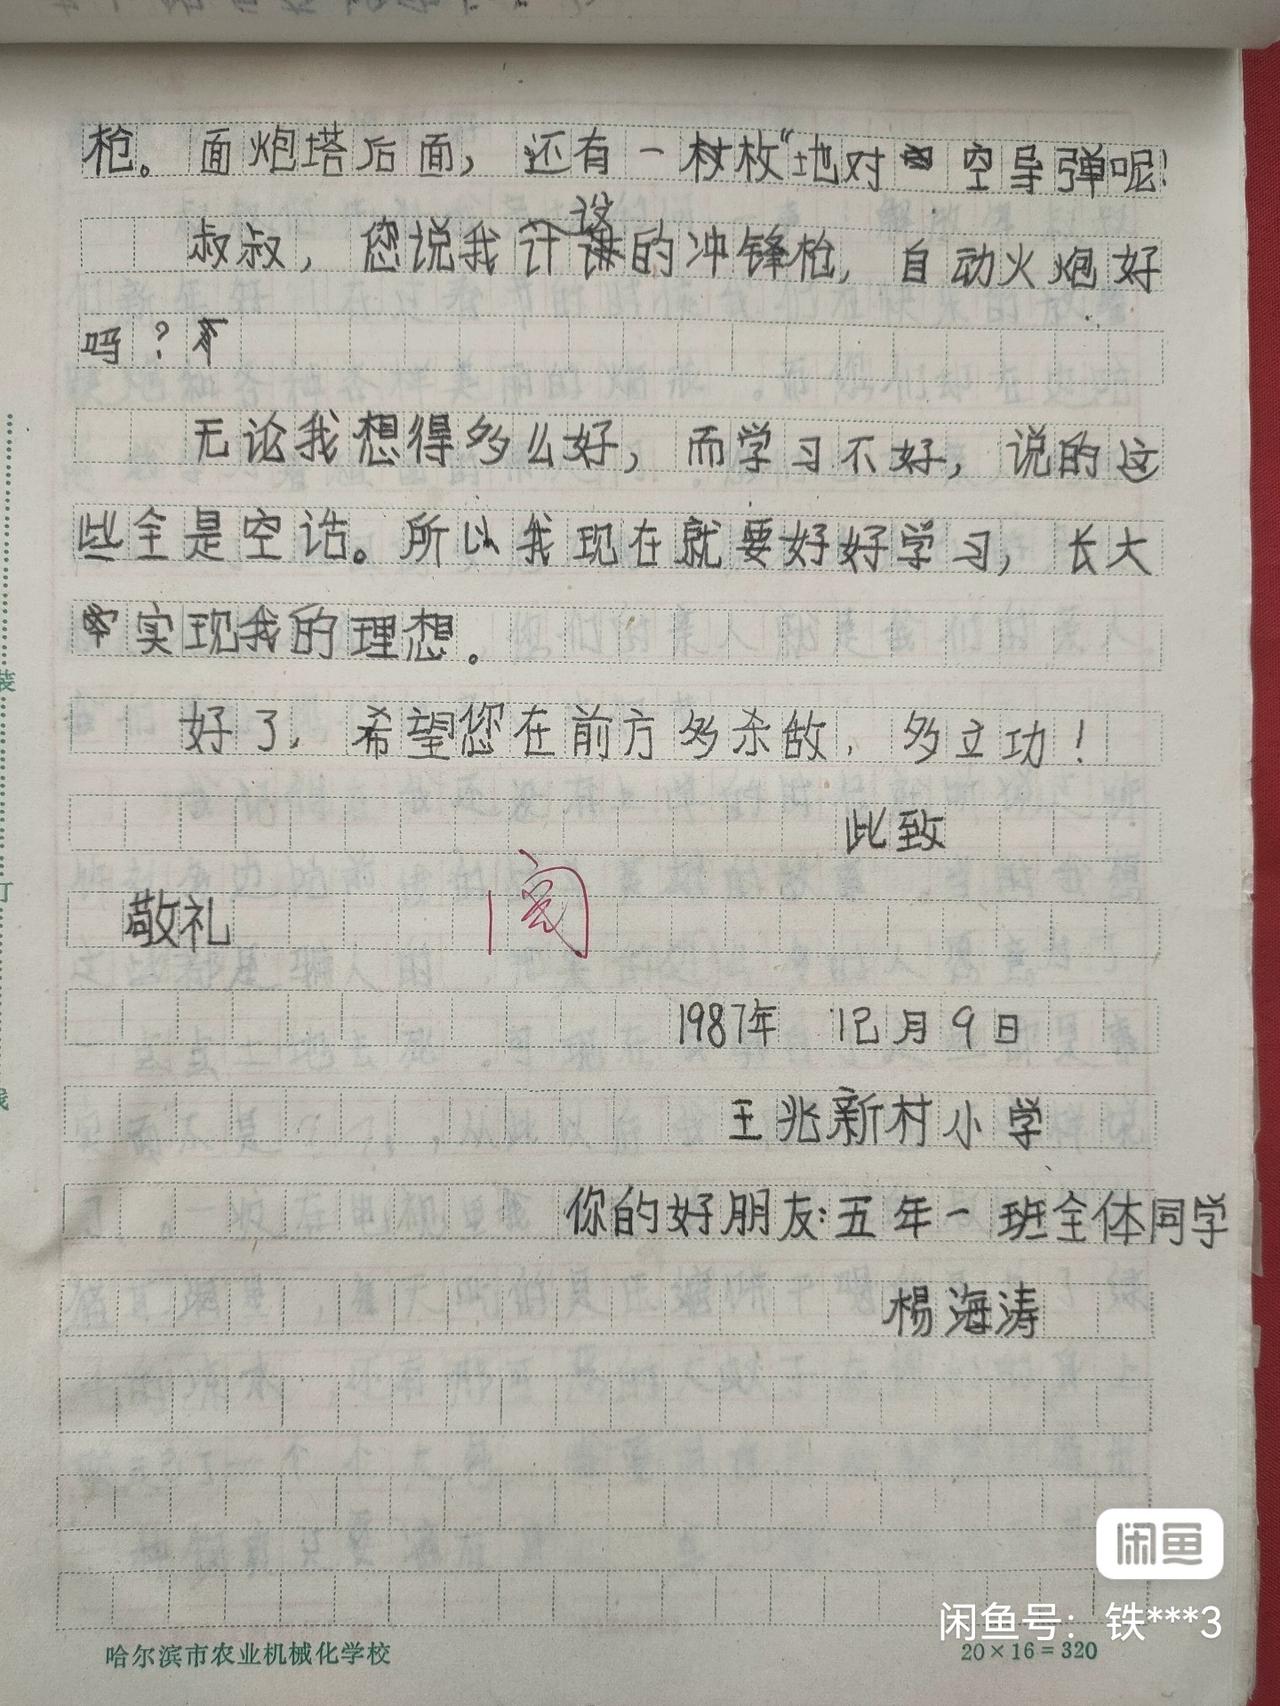 枪。面炮塔后面，还有一枚枚“地对空导弹呢！
叔叔，您说我计设的冲锋枪，自动火炮好
吗？
无论我想得多么好，而学习不好，说的这
些全是空话。所以我现在就要好好学习，长大
实现我的理想。
好了，希望您在前方多杀敌，多立功！
此致
敬礼
阅
1987年 12月9日
王兆新村小学
你的好朋友：五年一班全体同学
杨海涛
装
订
线
闲鱼
闲鱼号：铁***3
哈尔滨市农业机械化学校
20×16=320